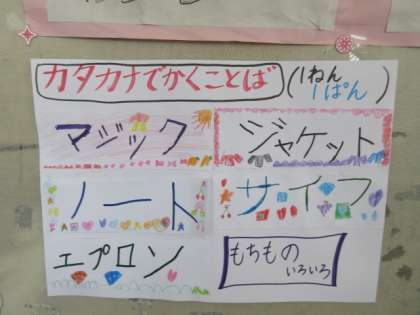 カタカナでかくことば (1ねん
1ぱん )
マジック
ジャケット
ノート
サイフ
エプロン
もちもの
いろいろ